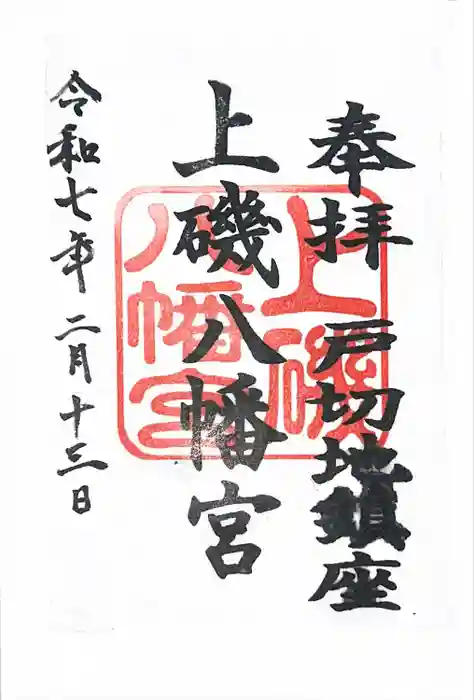 奉拝 戸切地鎮座
上磯八幡宮
上磯
八幡宮
令和七年二月十三日